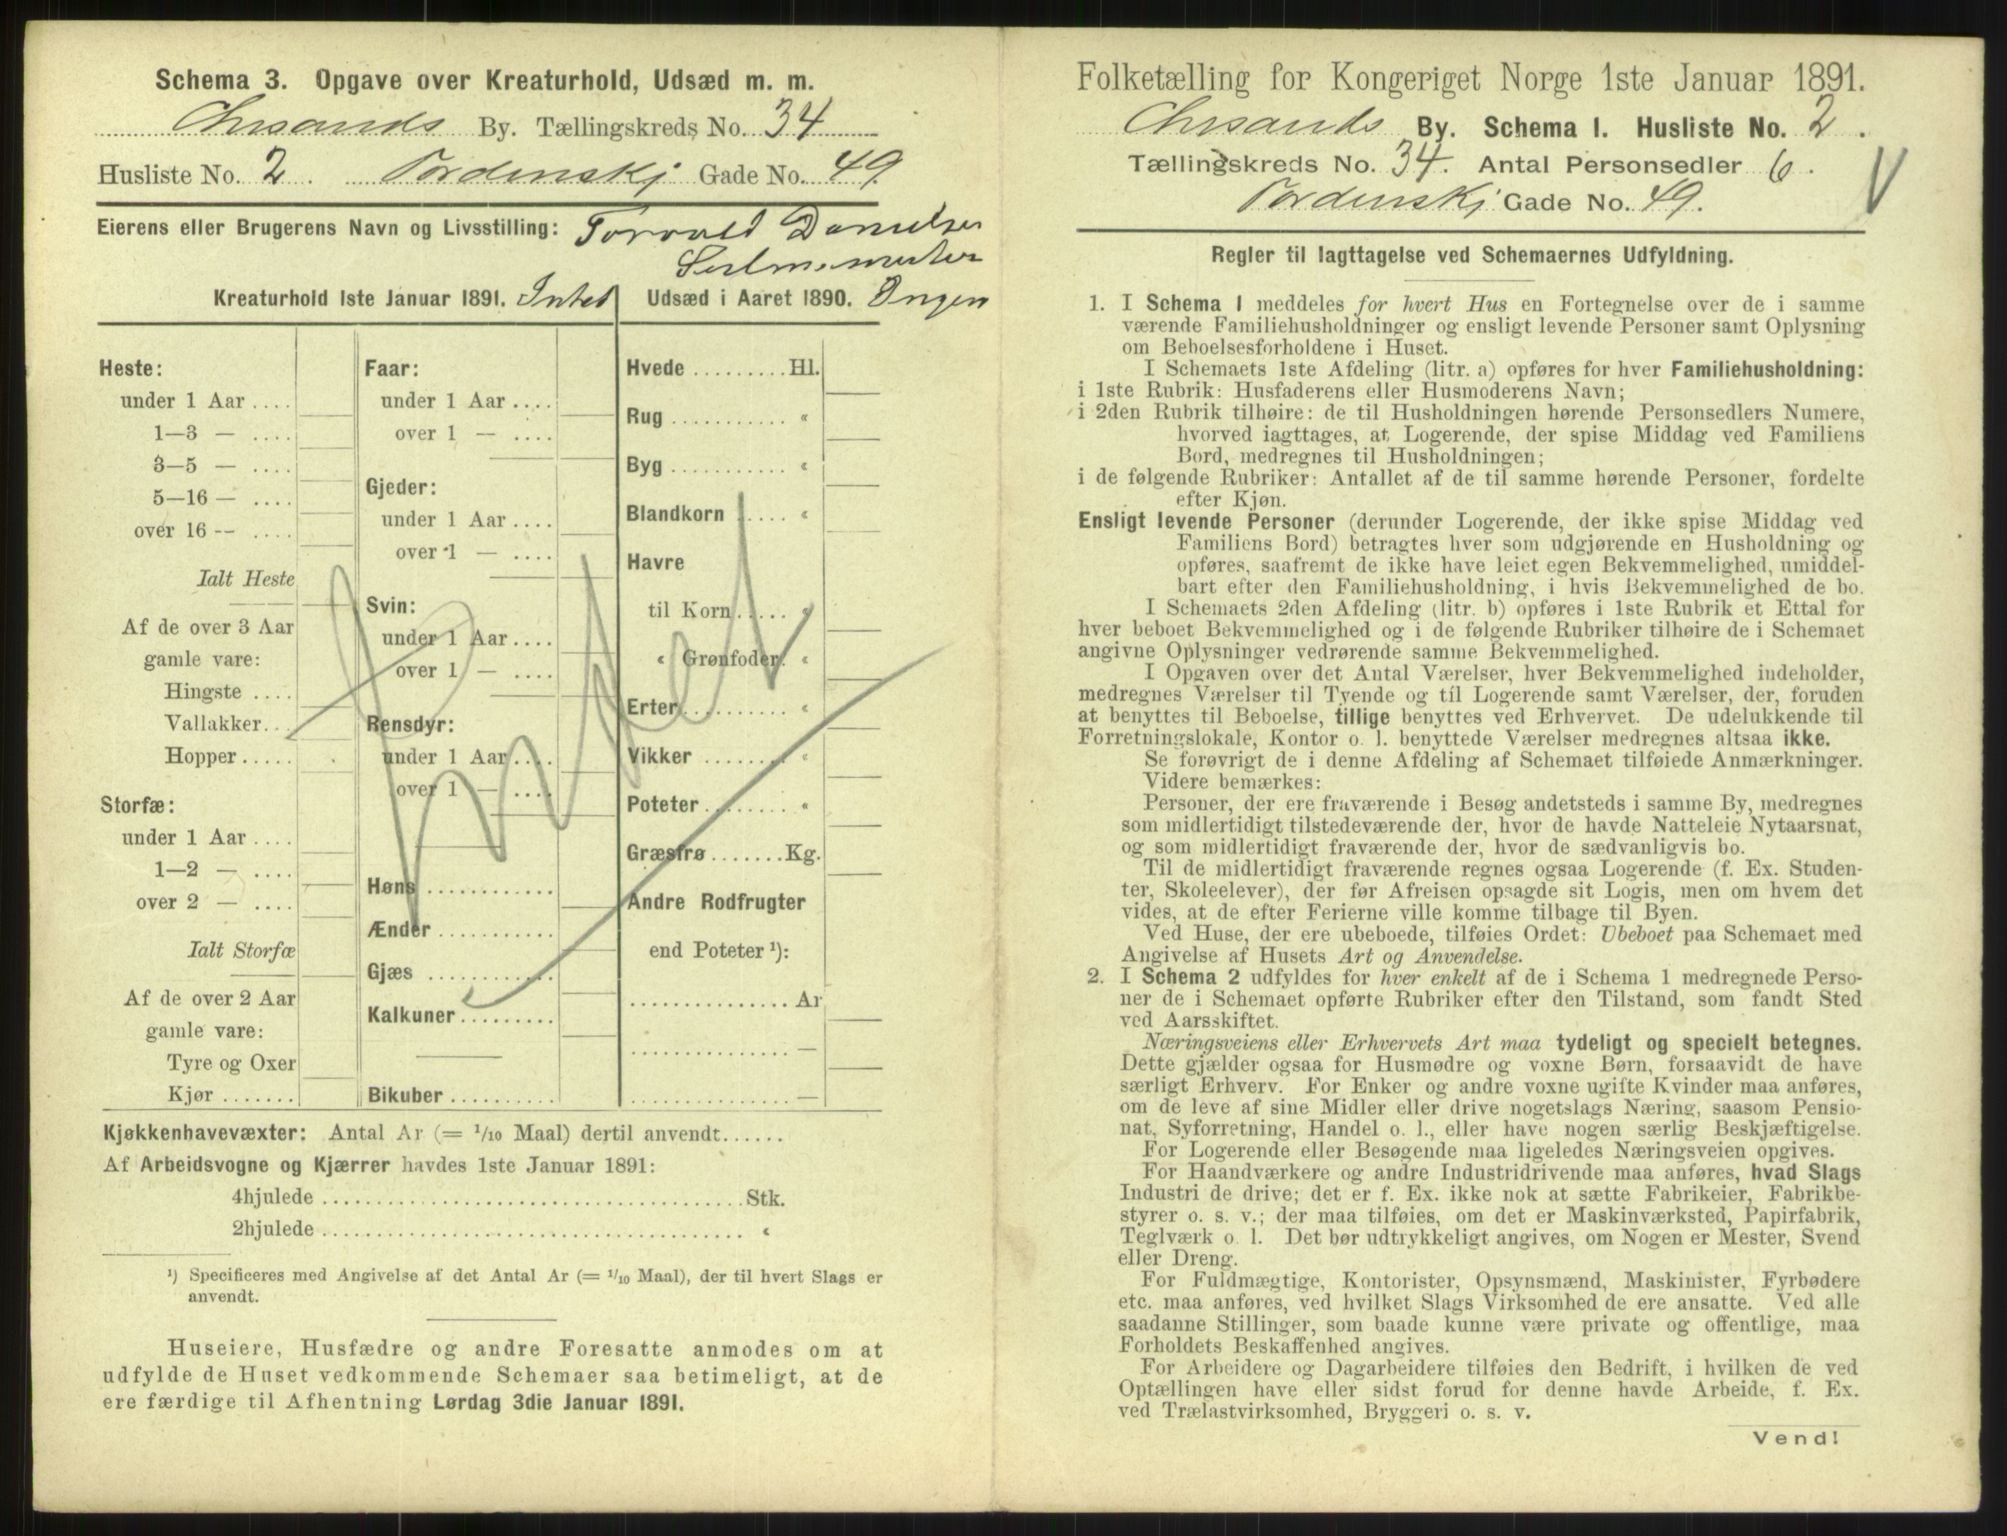 Schema 3. Opgave over Kreaturhold, Udsæd m. m.
Chrsands By. Tællingskreds No. 34
Husliste No. 2. Tordenskj Gade No. 49.
Eierens eller Brugerens Navn og Livsstilling: Torvald Danielsen
Seilmagermester
Kreaturhold 1ste Januar 1891. Intet
Heste:
under 1 Aar ....
1—3 — ....
3—5 — ....
5—16 — ....
over 16 -- ....
Ialt Heste
Af de over 3 Aar
gamle vare:
Hingste ....
Vallakker...
Hopper.....
Storfæ:
under 1 Aar ....
1—2 — ....
over 2 — ....
Ialt Storfæ
Af de over 2 Aar
gamle vare:
Tyre og Oxer
Kjør .......
Faar:
under 1 Aar ....
over 1 — ....
Gjeder:
under 1 Aar ....
over 1 — ....
Svin:
under 1 Aar ....
over 1 — ....
Rensdyr:
under 1 Aar ....
over 1 — ....
Høns ............
Ænder ...........
Gjæs ............
Kalkuner.........
Bikuber ..........
Udsæd i Aaret 1890. Ingen
Hvede ......... Hl.
Rug ........... «
Byg ........... «
Blandkorn ..... «
Havre
til Korn..... «
« Grønfoder. «
Erter.......... «
Vikker ........ «
Poteter........ «
Græsfrø.......Kg.
Andre Rodfrugter
end Poteter ¹):
............... Ar
............... —
............... —
Kjøkkenhavevæxter: Antal Ar (= 1/10 Maal) dertil anvendt......
Af Arbeidsvogne og Kjærrer havdes 1ste Januar 1891:
4hjulede ........................................ Stk.
2hjulede ........................................ «
¹) Specificeres med Angivelse af det Antal Ar (= 1/10 Maal), der til hvert Slags er
anvendt.
Huseiere, Husfædre og andre Foresatte anmodes om at
udfylde de Huset vedkommende Schemaer saa betimeligt, at de
ere færdige til Afhentning Lørdag 3die Januar 1891.
Folketælling for Kongeriget Norge 1ste Januar 1891.
Chrsands By. Schema I. Husliste No. 2.
Tællingskreds No. 34. Antal Personsedler 6.
Tordenskj Gade No. 49.
Regler til Iagttagelse ved Schemaernes Udfyldning.
1. I Schema 1 meddeles for hvert Hus en Fortegnelse over de i samme
værende Familiehusholdninger og ensligt levende Personer samt Oplysning
om Beboelsesforholdene i Huset.
I Schemaets 1ste Afdeling (litr. a) opføres for hver Familiehusholdning:
i 1ste Rubrik: Husfaderens eller Husmoderens Navn;
i 2den Rubrik tilhøire: de til Husholdningen hørende Personsedlers Numere,
hvorved iagttages, at Logerende, der spise Middag ved Familiens
Bord, medregnes til Husholdningen;
i de følgende Rubriker: Antallet af de til samme hørende Personer, fordelte
efter Kjøn.
Ensligt levende Personer (derunder Logerende, der ikke spise Middag ved
Familiens Bord) betragtes hver som udgjørende en Husholdning og
opføres, saafremt de ikke have leiet egen Bekvemmelighed, umiddel-
bart efter den Familiehusholdning, i hvis Bekvemmelighed de bo.
I Schemaets 2den Afdeling (litr. b) opføres i 1ste Rubrik et Ettal for
hver beboet Bekvemmelighed og i de følgende Rubriker tilhøire de i Schemaet
angivne Oplysninger vedrørende samme Bekvemmelighed.
I Opgaven over det Antal Værelser, hver Bekvemmelighed indeholder,
medregnes Værelser til Tyende og til Logerende samt Værelser, der, foruden
at benyttes til Beboelse, tillige benyttes ved Erhvervet. De udelukkende til
Forretningslokale, Kontor o. l. benyttede Værelser medregnes altsaa ikke.
Se forøvrigt de i denne Afdeling af Schemaet tilføiede Anmærkninger.
Videre bemærkes:
Personer, der ere fraværende i Besøg andetsteds i samme By, medregnes
som midlertidigt tilstedeværende der, hvor de havde Natteleie Nytaarsnat,
og som midlertidigt fraværende der, hvor de sædvanligvis bo.
Til de midlertidigt fraværende regnes ogsaa Logerende (f. Ex. Studen-
ter, Skoleelever), der før Afreisen opsagde sit Logis, men om hvem det
vides, at de efter Ferierne ville komme tilbage til Byen.
Ved Huse, der ere ubeboede, tilføies Ordet: Ubeboet paa Schemaet med
Angivelse af Husets Art og Anvendelse.
2. I Schema 2 udfyldes for hver enkelt af de i Schema 1 medregnede Perso-
ner de i Schemaet opførte Rubriker efter den Tilstand, som fandt Sted
ved Aarsskiftet.
Næringsveiens eller Erhvervets Art maa tydeligt og specielt betegnes.
Dette gjælder ogsaa for Husmødre og voxne Børn, forsaavidt de have
særligt Erhverv. For Enker og andre voxne ugifte Kvinder maa anføres,
om de leve af sine Midler eller drive nogetslags Næring, saasom Pensio-
nat, Syforretning, Handel o. l., eller have nogen særlig Beskjæftigelse.
For Logerende eller Besøgende maa ligeledes Næringsveien opgives.
For Haandværkere og andre Industridrivende maa anføres, hvad Slags
Industri de drive; det er f. Ex. ikke nok at sætte Fabrikeier, Fabrikbe-
styrer o. s. v.; der maa tilføies, om det er Maskinværksted, Papirfabrik,
Teglværk o. l. Det bør udtrykkeligt angives, om Nogen er Mester, Svend
eller Dreng.
For Fuldmægtige, Kontorister, Opsynsmænd, Maskinister, Fyrbødere
etc. maa anføres, ved hvilket Slags Virksomhed de ere ansatte. Ved alle
saadanne Stillinger, som baade kunne være private og offentlige, maa
Forholdets Beskaffenhed angives.
For Arbeidere og Dagarbeidere tilføies den Bedrift, i hvilken de ved
Optællingen have eller sidst forud for denne havde Arbeide, f. Ex.
ved Trælastvirksomhed, Bryggeri o. s. v.
Vend!